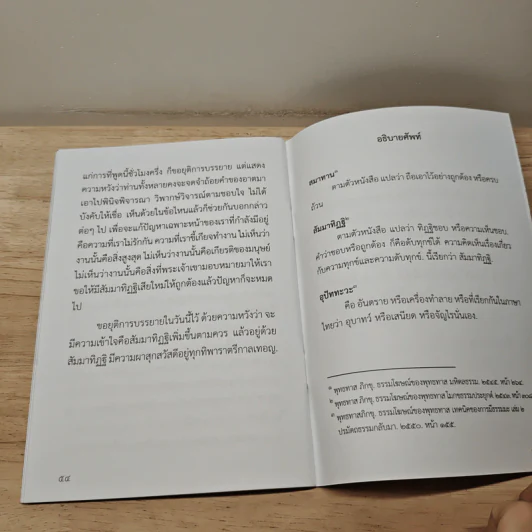 แก่การที่พูดนี้ชั่วโมงครึ่ง ก็ขอยุติการบรรยาย แต่แสดง
ความหวังว่าท่านทั้งหลายคงจะจดจำถ้อยคำของอาตมา
เอาไปพินิจพิจารณา วิพากษ์วิจารณ์ตามชอบใจ ไม่ได้
บังคับให้เชื่อ เห็นด้วยในข้อไหนแล้วก็ช่วยกันบอกกล่าว
ต่อๆ ไป เพื่อจะแก้ปัญหาเฉพาะหน้าของเราที่กำลังมีอยู่
คือความที่เราไม่รักกัน ความที่เราขี้เกียจทำงาน ไม่เห็นว่า
งานนั้นคือสิ่งสูงสุด ไม่เห็นว่างานนั้นคือเกียรติของมนุษย์
ไม่เห็นว่างานนั้นคือสิ่งที่พระเจ้าเขามอบหมายมาให้เรา
ขอให้มีสัมมาทิฏฐิเสียใหม่ให้ถูกต้องแล้วปัญหาก็จะหมด
ไป
ขอยุติการบรรยายในวันนี้ไว้ ด้วยความหวังว่า จะ
มีความเข้าใจคือสัมมาทิฏฐิเพิ่มขึ้นตามควร แล้วอยู่ด้วย
สัมมาทิฏฐิ มีความผาสุกสวัสดีอยู่ทุกทิพาราตรีกาลเทอญ.
๕๔
อธิบายศัพท์
สมาทาน
ตามตัวหนังสือ แปลว่า ถือเอาไว้อย่างถูกต้อง หรือครบ
ถ้วน
สัมมาทิฏฐิ
ตามตัวหนังสือ แปลว่า ทิฏฐิชอบ หรือความเห็นชอบ
คำว่าชอบหรือถูกต้อง ก็คือดับทุกข์ได้ ความคิดเห็นเรื่องเกี่ยว
กับความทุกข์และความดับทุกข์. นี้เรียกว่า สัมมาทิฏฐิ.
อุปัททะวะ
คือ อันตราย หรือเครื่องทำลาย หรือที่เรียกกันในภาษา
ไทยว่า อุบาทว์ หรือเสนียด หรือจัญไรนั่นเอง.
พุทธทาส ภิกขุ. ธรรมโฆษณ์ของพุทธทาส มหิดลธรรม. หน้า
พุทธทาส ภิกขุ. ธรรมโฆษณ์ของพุทธทาส โมกขธรรมประยุกต์. หน้า
พุทธทาสภิกขุ. ธรรมโฆษณ์ของพุทธทาส เทคนิคของการมีธรรมะ เล่ม ๒
ปรมัตถธรรมกลับมา. ๒๕๕๐. หน้า ๑๕๕.